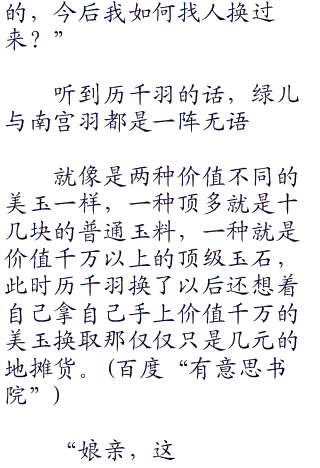 的，今后我如何找人换过
来？”
听到历千羽的话，绿儿
与南宫羽都是一阵无语
就像是两种价值不同的
美玉一样，一种顶多就是十
几块的普通玉料，一种就是
价值千万以上的顶级玉石，
此时历千羽换了以后还想着
自己拿自己手上价值千万的
美玉换取那仅仅只是几元的
地摊货。(百度“有意思书
院”)
“娘亲，这